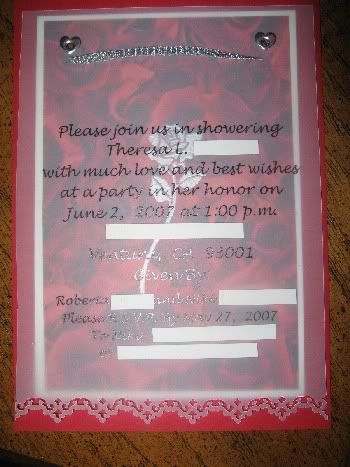 Please join us in showering
Theresa L.
with much love and best wishes
at a party in her honor on
June 2, 2007 at 1:00 p.m.
Ventura, CA 93001
Given By
Roberta and
Please R.S.V.P. by May 27, 2007